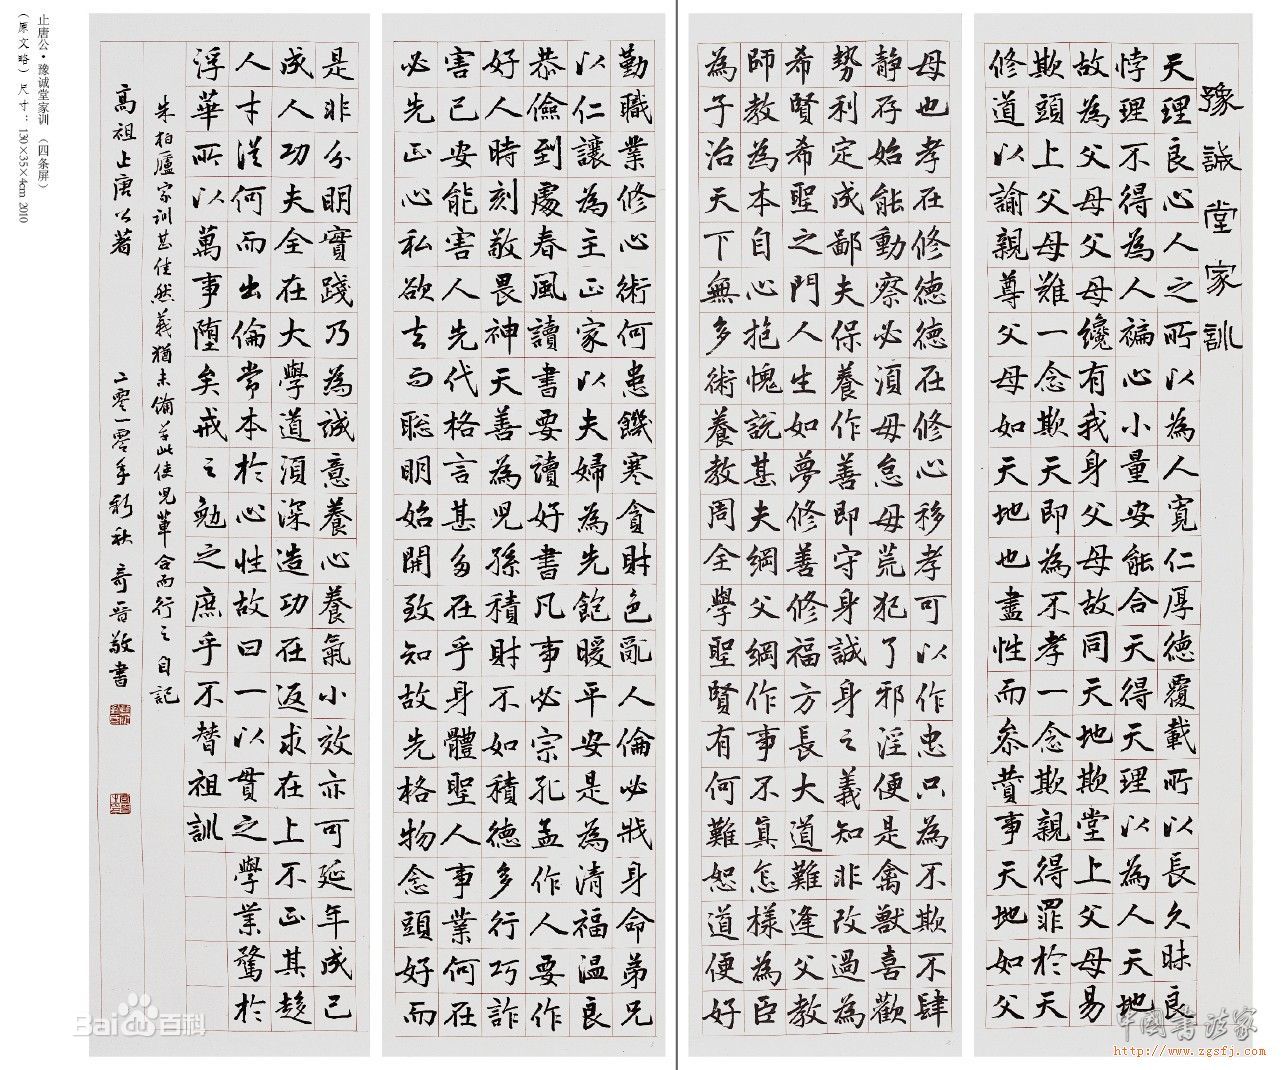 豫誠堂家訓
天理良心人之所以為人寬仁厚德覆載所以長久昧良
悖理不得為人褊心小量安能合天得天理以為人天地
故為父母父母纔有我身父母故同天地欺堂上父母易
欺頭上父母難一念欺天即為不孝一念欺親得罪於天
修道以諭親尊父母如天地也盡性而參贊事天地如父
母也孝在修德德在修心移孝可以作忠只為不欺不肆
靜存始能動察必須毋怠毋荒犯了邪淫便是禽獸喜歡
勢利定成鄙夫保養作善即守身誠身之義知非改過為
希賢希聖之門人生如夢修善修福方長大道難逢父教
師教為本自心抱愧說甚夫綱父綱作事不真怎樣為臣
為子治天下無多術養教周全學聖賢有何難恕道便好
勤職業修心術何患饑寒貪財色亂人倫必戕身命弟兄
以仁讓為主正家以夫婦為先飽暖平安是為清福溫良
恭儉到處春風讀書要讀好書凡事必宗孔孟作人要作
好人時刻敬畏神天善為兒孫積財不如積德多行巧詐
害己安能害人先代格言甚多在乎身體聖人事業何在
必先正心私欲去而聰明始開致知故先格物念頭好而
是非分明實踐乃為誠意養心養氣小效亦可延年成己
成人功夫全在大學道須深造功在返求在上不正其趍
人才從何而出倫常本於心性故曰一以貫之學業騖於
浮華所以萬事墮矣戒之勉之庶乎不替祖訓
朱柏廬家訓甚佳然義猶未備著此使兒輩合而行之自記
高祖止唐公著 二零一零年新秋 奇晋敬書
止唐公·豫诚堂家训（四条屏）
（原文略）尺寸：130×35×4cm 2010
Bai百科
中國書法家
http://www.zgsfj.com